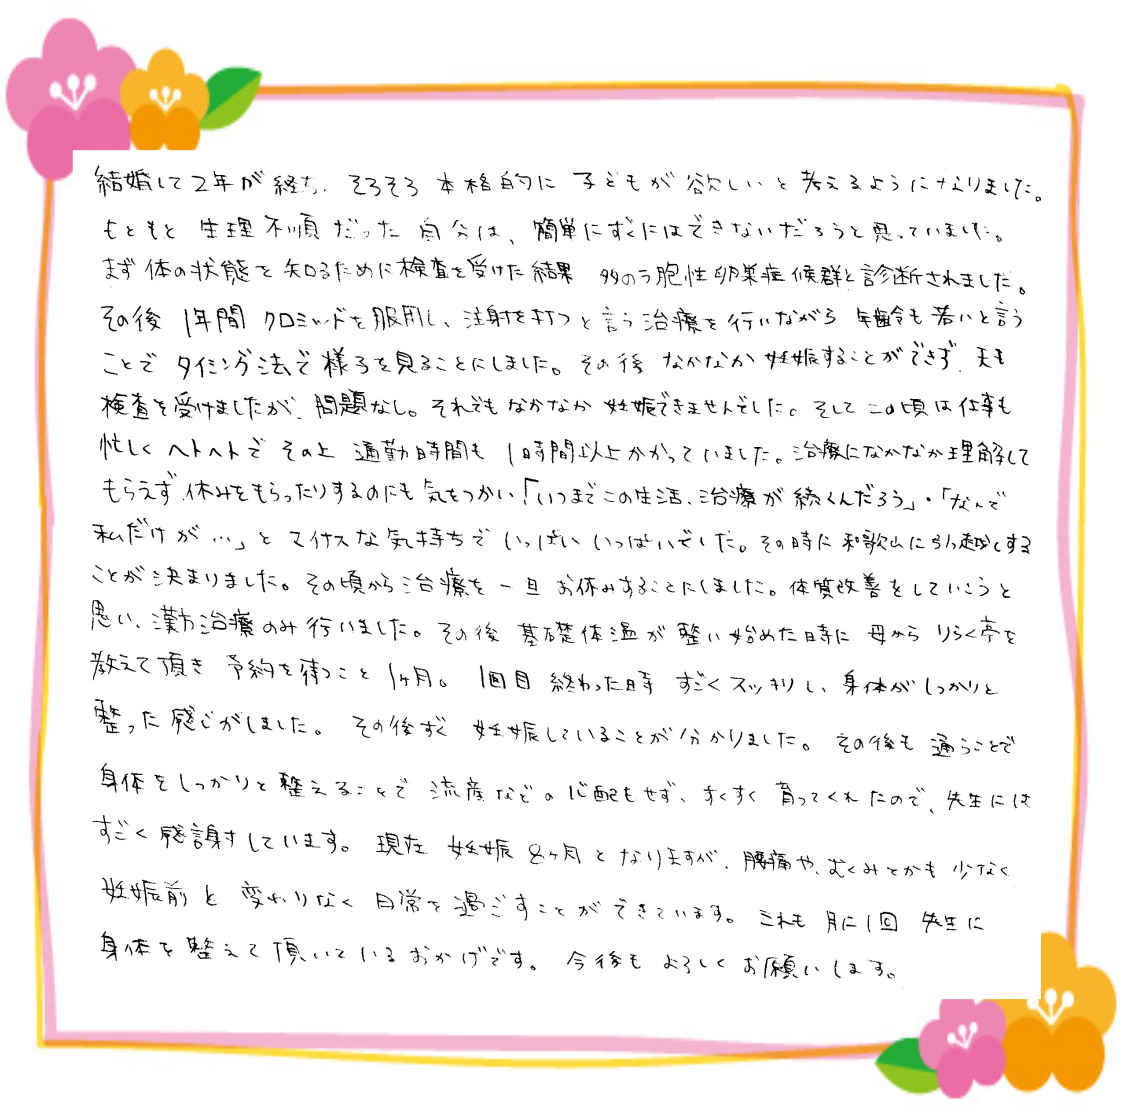 結婚して2年が経ち、そろそろ本格的に子どもが欲しいと考えるようになりました。
もともと生理不順だった自分は、簡単にすぐにはできないだろうと思っていました。
まず体の状態を知るために検査を受けた結果 多のう胞性卵巣症候群と診断されました。
その後 1年間 クロミッドを服用し、注射を打つと言う治療を行いながら 年齢も若いと言う
ことで タイミング法で様子を見ることにしました。その後 なかなか妊娠することができず、夫も
検査を受けましたが、問題なし。それでもなかなか妊娠できませんでした。そしてこの頃は仕事も
忙しくヘトヘトで その上 通勤時間も 1時間以上かかっていました。治療になかなか理解して
もらえず、休みをもらったりするのにも気をつかい「いつまでこの生活、治療が続くんだろう」・「なんで
私だけが…」とマイナスな気持ちでいっぱいいっぱいでした。その時に和歌山に引っ越しする
ことが決まりました。その頃から治療を一旦お休みすることにしました。体質改善をしていこうと
思い、漢方治療のみ行いました。その後 基礎体温が整い始めた時に 母から りらく亭を
教えて頂き 予約を待つこと 1ヶ月。 1回目 終わった時 すごくスッキリし、身体がしっかりと
整った感じがしました。 その後すぐ 妊娠していることが分かりました。 その後も通うことで
身体をしっかりと整えることで 流産などの心配もせず、すくすく育ってくれたので、先生には
すごく感謝しています。 現在 妊娠8ヶ月となりますが、腰痛や、むくみとかも少なく
妊娠前と変わりなく日常を過ごすことができています。これも月に1回 先生に
身体を整えて頂いているおかげです。 今後もよろしくお願いします。